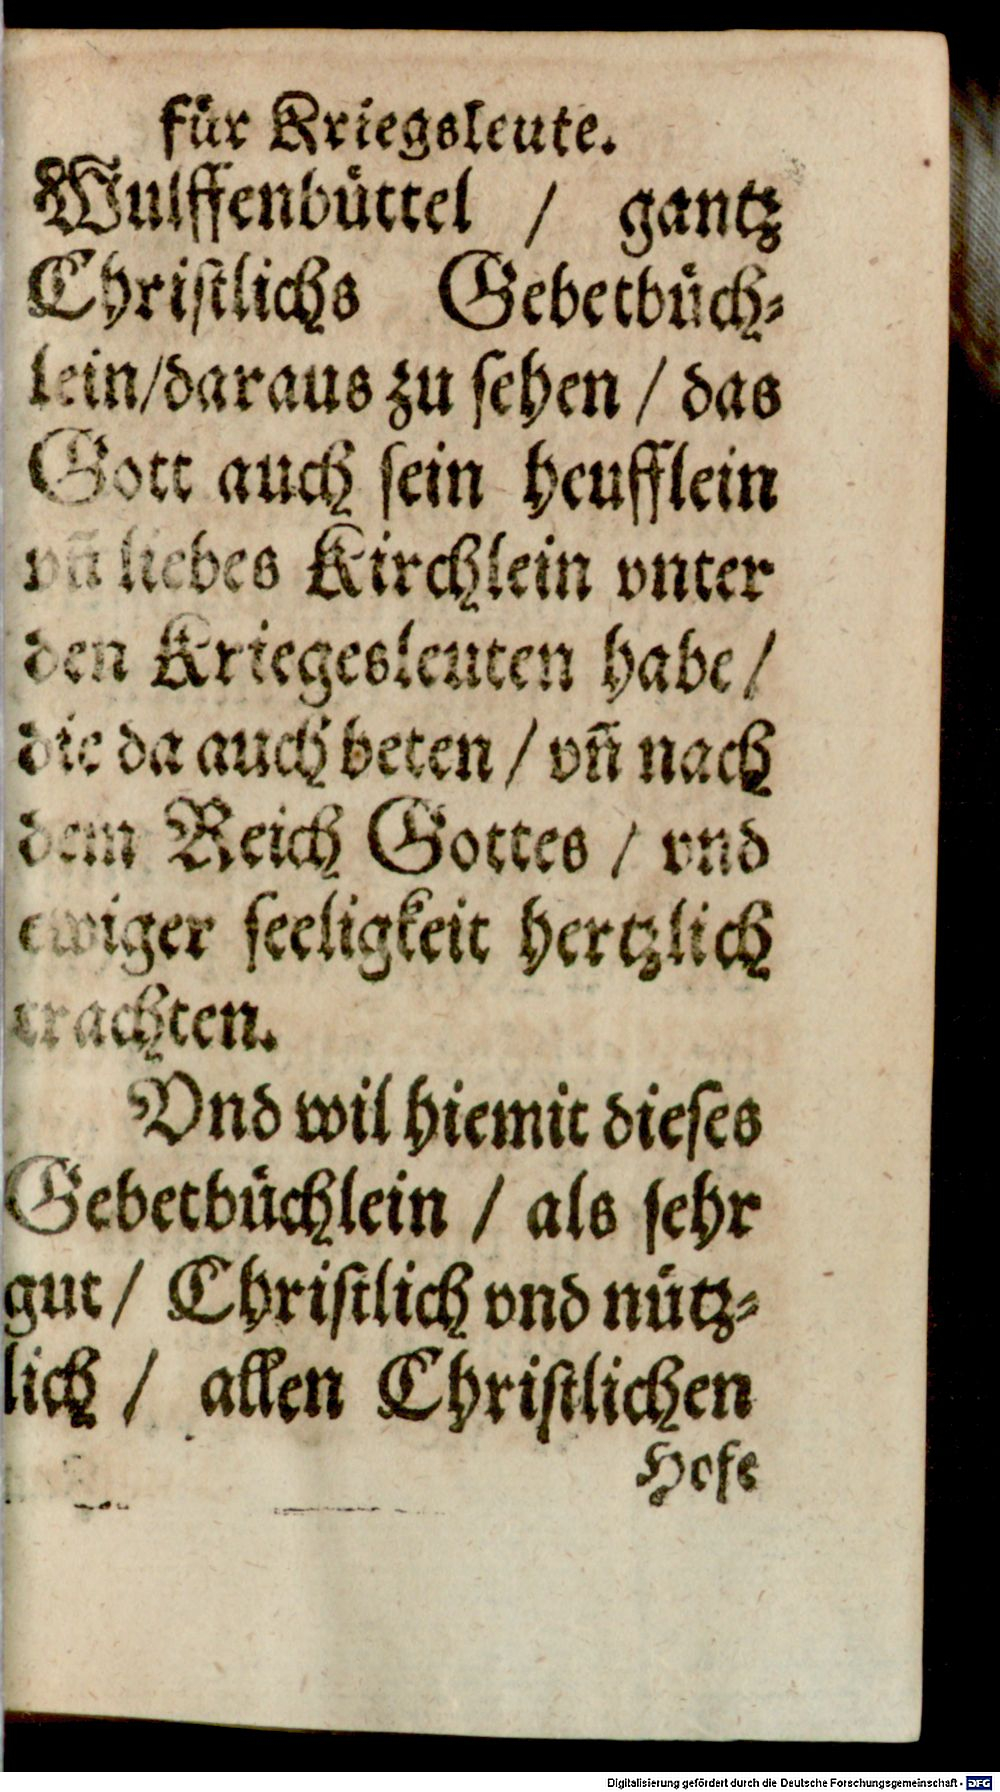 für Kriegsleute.
Wulffenbüttel / gantz
Christlichs Gebetbüch-
lein/daraus zu sehen / das
Gott auch sein heufflein
vñ liebes Kirchlein vnter
den Kriegesleuten habe/
die da auch beten / vñ nach
dem Reich Gottes / vnd
ewiger seeligkeit hertzlich
trachten.
Vnd wil hiemit dieses
Gebetbüchlein / als sehr
gut / Christlich vnd nütz-
lich / allen Christlichen
Hofe
Digitalisierung gefördert durch die Deutsche Forschungsgemeinschaft - DFG